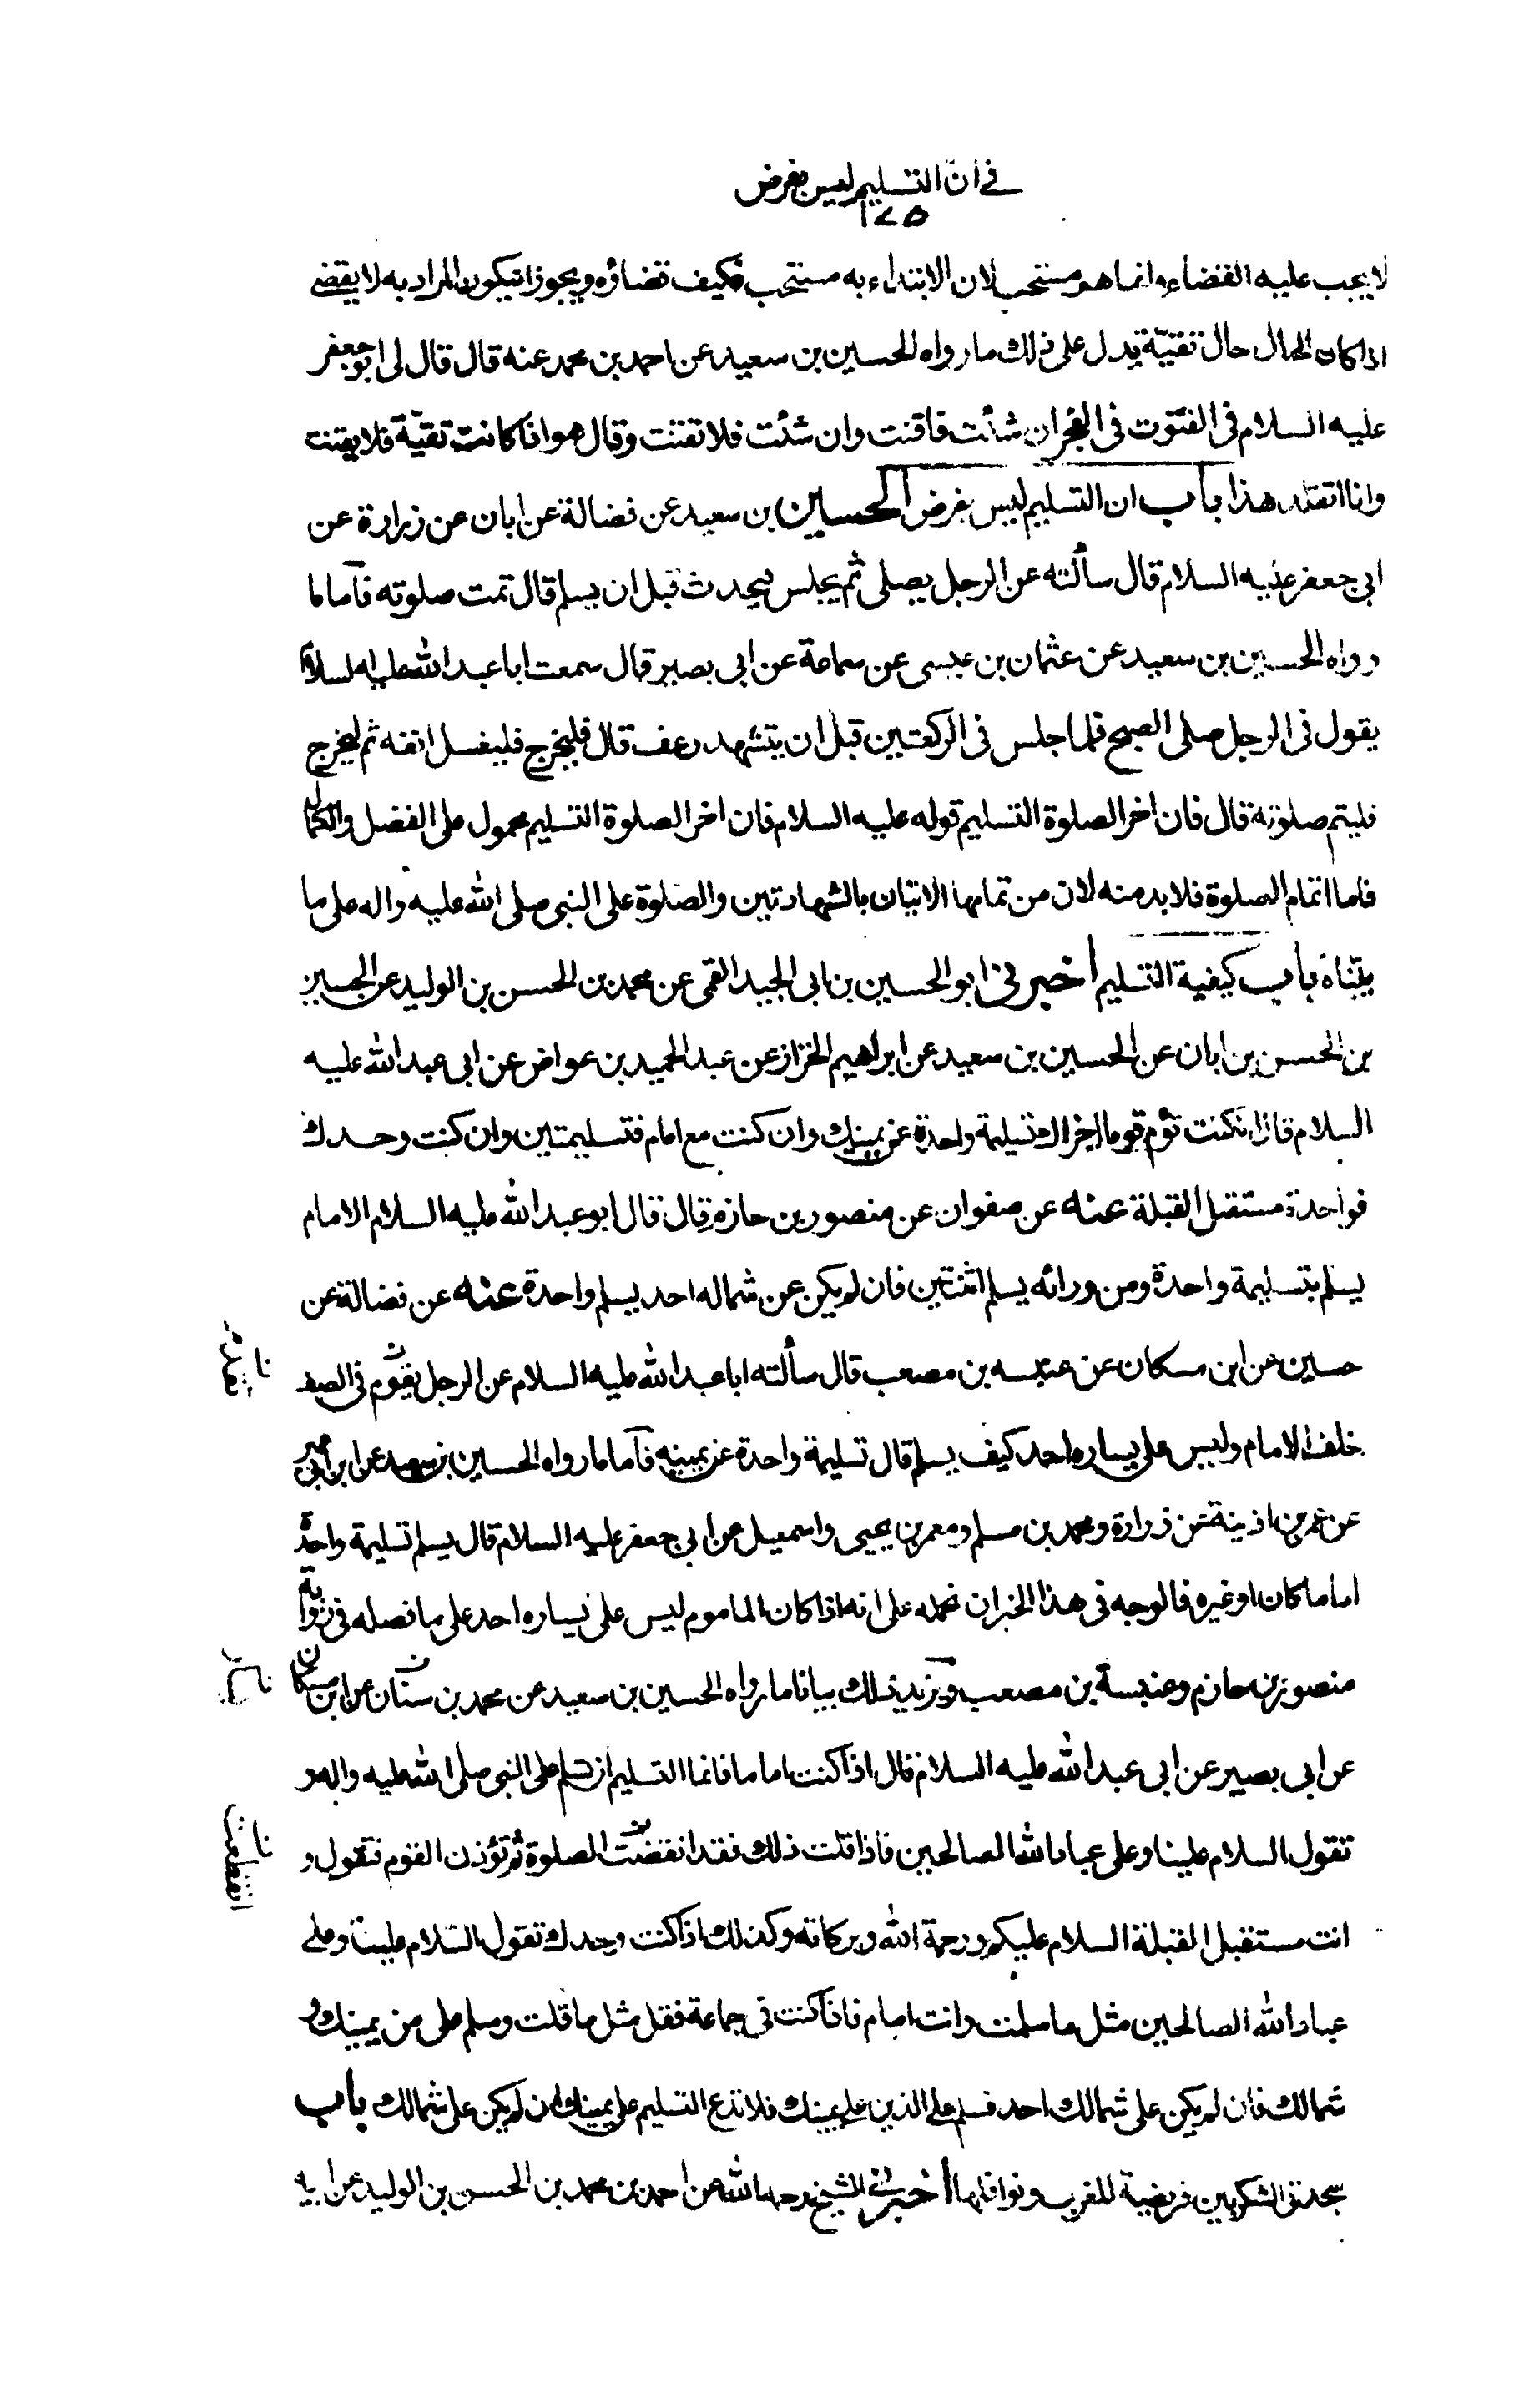 في ان التسليم ليس بفرض
١٧٥
لا يجب عليه القضاء وانما هو مستحب لان الابتداء به مستحب فكيف قضاؤه ويجوز ان يكون المراد به لا يقضى
اذا كان الحال حال تقيّة يدل على ذلك ما رواه الحسين بن سعيد عن احمد بن محمد عنه قال قال لى ابو جعفر
عليه السلام فى القنوت فى الفجر ان شئت فاقنت وان شئت فلا تقنت وقال هو اذا كانت تقيّة فلا يقنت
وانا اتقلد هذا باب ان التسليم ليس بفرض الحسين بن سعيد عن فضالة عن ابان عن زرارة عن
ابى جعفر عليه السلام قال سألته عن الرجل يصلى ثم يجلس فيحدث قبل ان يسلم قال تمت صلوته فأما ما
رواه الحسين بن سعيد عن عثمان بن عيسى عن سماعة عن ابى بصير قال سمعت ابا عبد الله عليه السلام
يقول فى الرجل صلى الصبح فلما جلس فى الركعتين قبل ان يتشهد رعف قال فليخرج فليغسل انفه ثم ليخرج
فليتم صلوته قال فان اخر الصلوة التسليم قوله عليه السلام فان اخر الصلوة التسليم محمول على الفضل والكمال
فاما اتمام الصلوة فلا بد منه لان من تمامها الاتيان بالشهادتين والصلوة على النبى صلى الله عليه واله على ما
بيّناه باب كيفية التسليم أخبرنى ابو الحسين بن ابى الجيد القمى عن محمد بن الحسن بن الوليد عن الحسين
بن الحسن بن ابان عن الحسين بن سعيد عن ابراهيم الخزاز عن عبد الحميد بن عواض عن ابى عبد الله عليه
السلام قال ان كنت تؤم قوما اجزاك تسليمة واحدة عن يمينك وان كنت مع امام فتسليمتين وان كنت وحدك
فواحدة مستقبل القبلة عنه عن صفوان عن منصور بن حازم قال قال ابو عبد الله عليه السلام الامام
يسلم بتسليمة واحدة ومن ورائه يسلم اثنتين فان لم يكن عن شماله احد يسلم واحدة عنه عن فضالة عن
حسين عن ابن مسكان عن عنبسه بن مصعب قال سألته ابا عبد الله عليه السلام عن الرجل يقوم فى الصف
خلف الامام وليس على يساره احد كيف يسلم قال تسليمة واحدة عن يمينه فأما ما رواه الحسين بن سعيد عن ابن ابى عمير
عن عمر بن اذينة عن زرارة ومحمد بن مسلم ومعمر بن يحيى واسمعيل عن ابى جعفر عليه السلام قال يسلم تسليمة واحدة
اماما كان او غيره فالوجه فى هذا الخبر ان نحمله على انه اذا كان الماموم ليس على يساره احد على ما فصله فى رواية
منصور بن حازم وعنبسة بن مصعب ويزيد ذلك بيانا ما رواه الحسين بن سعيد عن محمد بن سنان عن ابن مسكان
عن ابى بصير عن ابى عبد الله عليه السلام قال اذا كنت اماما فانما التسليم ان تسلم على النبى صلى الله عليه واله و
تقول السلام علينا وعلى عباد الله الصالحين فاذا قلت ذلك فقد انقضت الصلوة ثم تؤذن القوم فتقول و
انت مستقبل القبلة السلام عليكم ورحمة الله وبركاته وكذلك اذا كنت وحدك تقول السلام علينا وعلى
عباد الله الصالحين مثل ما سلمت وانت امام فاذا كنت فى جماعة فقل مثل ما قلت وسلم على من يمينك و
شمالك فان لم يكن على شمالك احد فسلم على الذين على يمينك فلا تدع التسليم على يمينك ان لم يكن على شمالك باب
سجدتى الشكر بين فريضة المغرب ونوافلها أخبرنى الشيخ رحمه الله عن احمد بن محمد بن الحسن بن الوليد عن ابيه